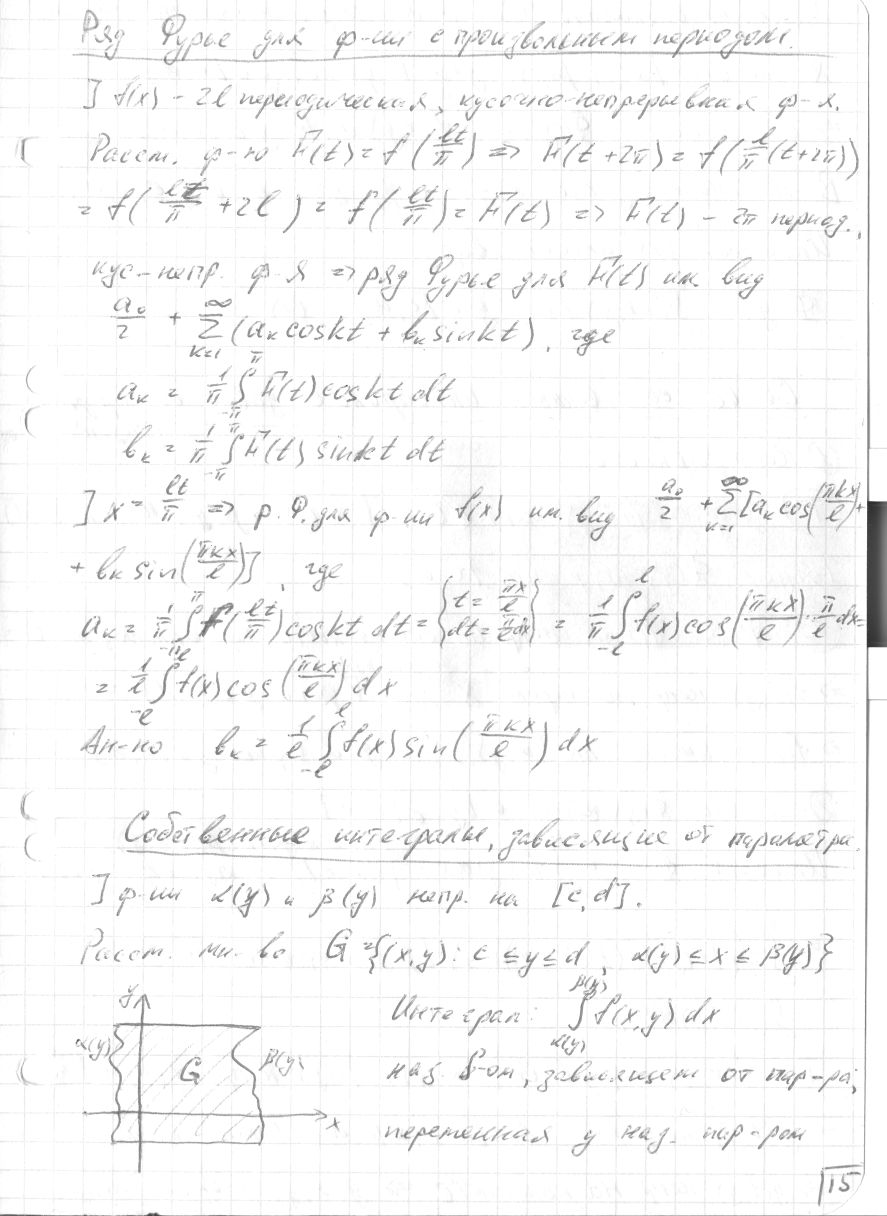 Ряд Фурье для ф-ии с произвольным периодом.
] f(x) - 2l периодическая, кусочно-непрерывная ф-я.
Рассм. ф-ю F(t) = f(lt/π) => F(t+2π) = f(l/π(t+2π))
= f(lt/π + 2l) = f(lt/π) = F(t) => F(t) - 2π период.,
кус-непр. ф-я => ряд Фурье для F(t) им. вид
a₀/2 + ∑_{k=1}^{∞} (aₖ cos kt + bₖ sin kt), где
aₖ = 1/π ∫_{-π}^{π} F(t) cos kt dt
bₖ = 1/π ∫_{-π}^{π} F(t) sin kt dt
] x = lt/π => р. Ф. для ф-ии f(x) им. вид a₀/2 + ∑_{k=1}^{∞} [aₖ cos(πkx/l) +
+ bₖ sin(πkx/l)], где
aₖ = 1/π ∫_{-π}^{π} f(lt/π) cos kt dt = {t = πx/l, dt = π/l dx} = 1/π ∫_{-l}^{l} f(x) cos(πkx/l) · π/l dx =
= 1/l ∫_{-l}^{l} f(x) cos(πkx/l) dx
Ан-но bₖ = 1/l ∫_{-l}^{l} f(x) sin(πkx/l) dx
Собственные интегралы, зависящие от параметра.
] ф-ии α(y) и β(y) непр. на [c,d].
Рассм. мн-во G = {(x,y): c ≤ y ≤ d, α(y) ≤ x ≤ β(y)}
Интеграл: ∫_{α(y)}^{β(y)} f(x,y) dx
наз. ∫-ом, зависящем от пар-ра,
переменная y наз. пар-ром
y
α(y)
G
β(y)
x
15